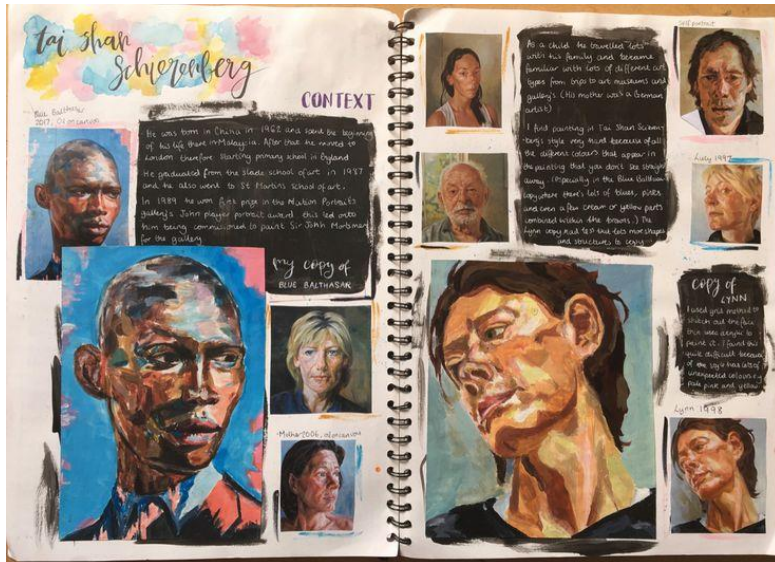 tai shan
Schierenberg
CONTEXT
Blue Balthasar
2017, Oil on canvas
He was born in China in 1962 and spend the beginning
of his life there in Malaysia. After that he moved to
London therefore starting primary school in England
He graduated from the slade school of art in 1987
and he also went to St Martins School of art.
In 1989 he won first prize in the Nation Portraits
gallery's John player portrait award this led onto
him being commissioned to paint Sir John Mortimer
for the gallery
my copy of
BLUE BALTHASAR
Mother 2006, oil on canvas
As a child he travelled lots
with his family and became
familiar with lots of different art
types from trips to art museums and
gallery's. (His mother was a German
artist)
I find painting in Tai Shan
style very hard because of all
the different colours that appear in
the painting that you don't see straight
away. (especially in the Blue Balthasar
copy where there's lots of blues, pinks
and even a few cream or yellow parts
combined within the browns.) The
Lynn copy had lots more shapes
and structures to copy
Self portrait
1997
copy of
LYNN
I used grid method to
sketch out the face
then used acrylic to
paint it. I found this
quite difficult because
of the style has lots of
unexpected colours eg
pale pink and yellow
Lynn 1998